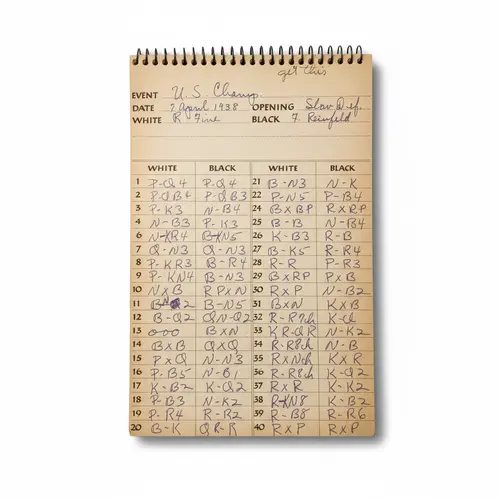 get this
EVENT U. S. Champ.
DATE 7 April 1938 OPENING Slav Def.
WHITE R Fine BLACK F. Reinfeld
WHITE BLACK WHITE BLACK
1 P-Q4 P-Q4 21 B-N3 N-K
2 P-QB4 P-QB3 22 P-N5 P-B4
3 P-K3 N-B4 24 BxBP RxRP
4 N-B3 P-K3 25 B-B N-B4
5 N-KR4 B-KN5 26 K-B3 R-B
7 Q-N3 Q-N3 27 B-K5 R-R4
8 P-KR3 B-R4 28 R-R P-R3
9 P-KN4 B-N3 29 BxRP PxB
10 NxB RPxN 30 RxP N-B2
11 31 BxN KxB
12 B-Q2 QN-Q2 32 R-R7ch
13 000 BxN 33 KR-QR N-K2
14 BxB QxQ 34 R-R8ch N-B
15 PxQ N-N3 35 RxNch KxR
16 P-B5 36 R-R8ch K-Q2
17 K-B2 K-Q2 37 RxR K-K2
18 P-B3 N-K2 38 R-KN8 K-B2
19 P-R4 R-R2 39 R-B8 R-R6
20 B-K QR-R 40 RxP RxP